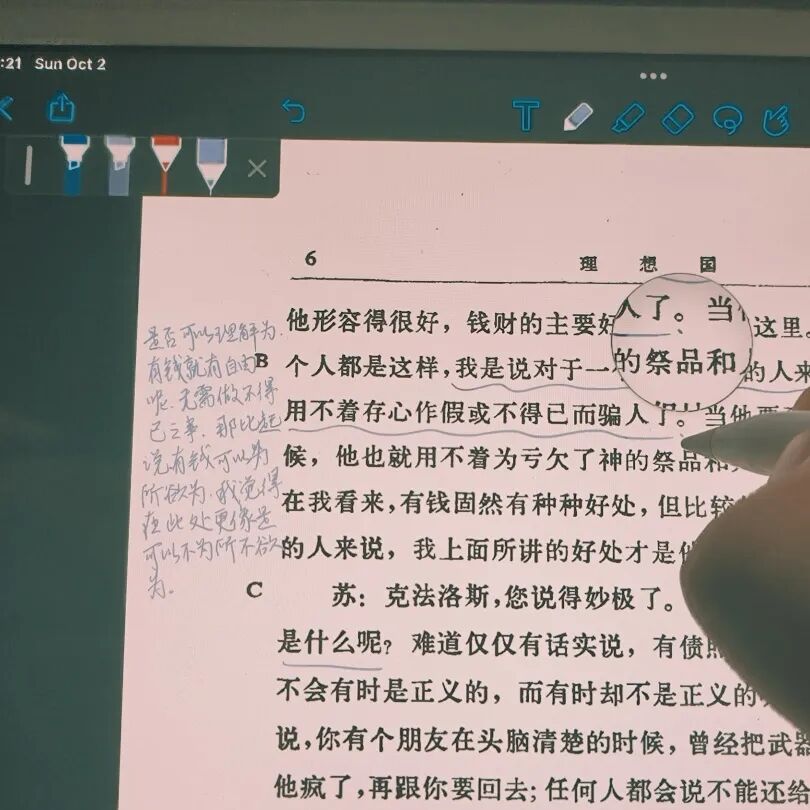 :21 Sun Oct 2
T
6 理想国
人了。当
的祭品和
他形容得很好，钱财的主要好 这里。
B 个人都是这样，我是说对于一 的人来
用不着存心作假或不得已而骗人了。当他要
候，他也就用不着为亏欠了神的祭品和
在我看来，有钱固然有种种好处，但比较
的人来说，我上面所讲的好处才是他
C 苏：克法洛斯，您说得妙极了。
是什么呢？难道仅仅有话实说，有债照
不会有时是正义的，而有时却不是正义的
说，你有个朋友在头脑清楚的时候，曾经把武器
他疯了，再跟你要回去；任何人都会说不能还给
是否可以理解为
有钱就有自由
呢.无需做不得
已之事.那比起
说有钱可以为
所欲为.我觉得
在此处更像是
可以不为所不欲
为。